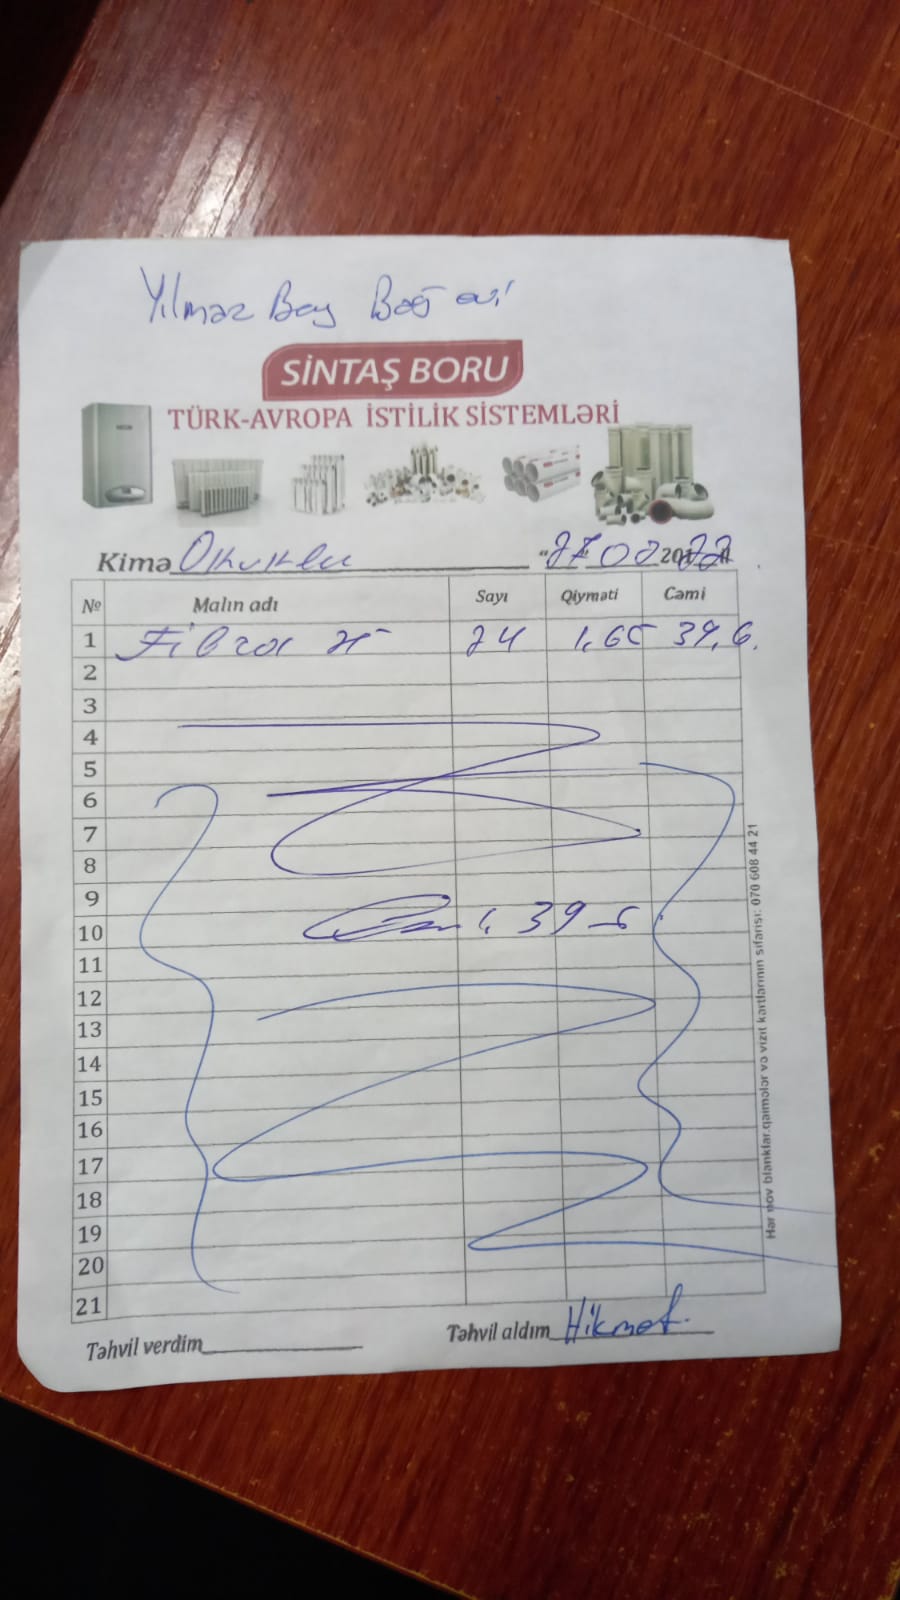 Yılmaz Bey Bağ evi
SİNTAŞ BORU
TÜRK-AVROPA İSTİLİK SİSTEMLƏRİ
Kimə
"27" 02 2022
№ Malın adı Sayı Qiyməti Cəmi
1 Fibra 25 24 1,65 39,6
2
3
4
5
6
7
8
9
10 39-6
11
12
13
14
15
16
17
18
19
20
21
Təhvil verdim
Təhvil aldım Hikmet
Hər növ blanklar, qaimələr və vizit kartlarının sifarişi: 070 608 44 21